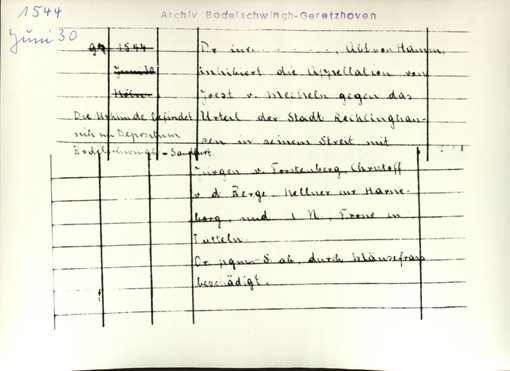 1544
Juni 30
Archiv Bodelschwingh-Geretzhoven
97 1544
Juni 30
Köln
Die Urkunde befindet
sich im Depositum
Bodelschwingh-Sandfurt.
Dr. iur. . . . . . ., Abt von Hamm,
inhibiert die Appellation von
Joest v. Mecheln gegen das
Urteil der Stadt Recklinghau-
sen in seinem Streit mit
Jürgen v. Forstenberg, Christoff
v. d. Berge, Kellner zur Horne-
borg, und 1 N., Frone in
Datteln.
Or. pgm. S ab, durch Mäusefrass
beschädigt.